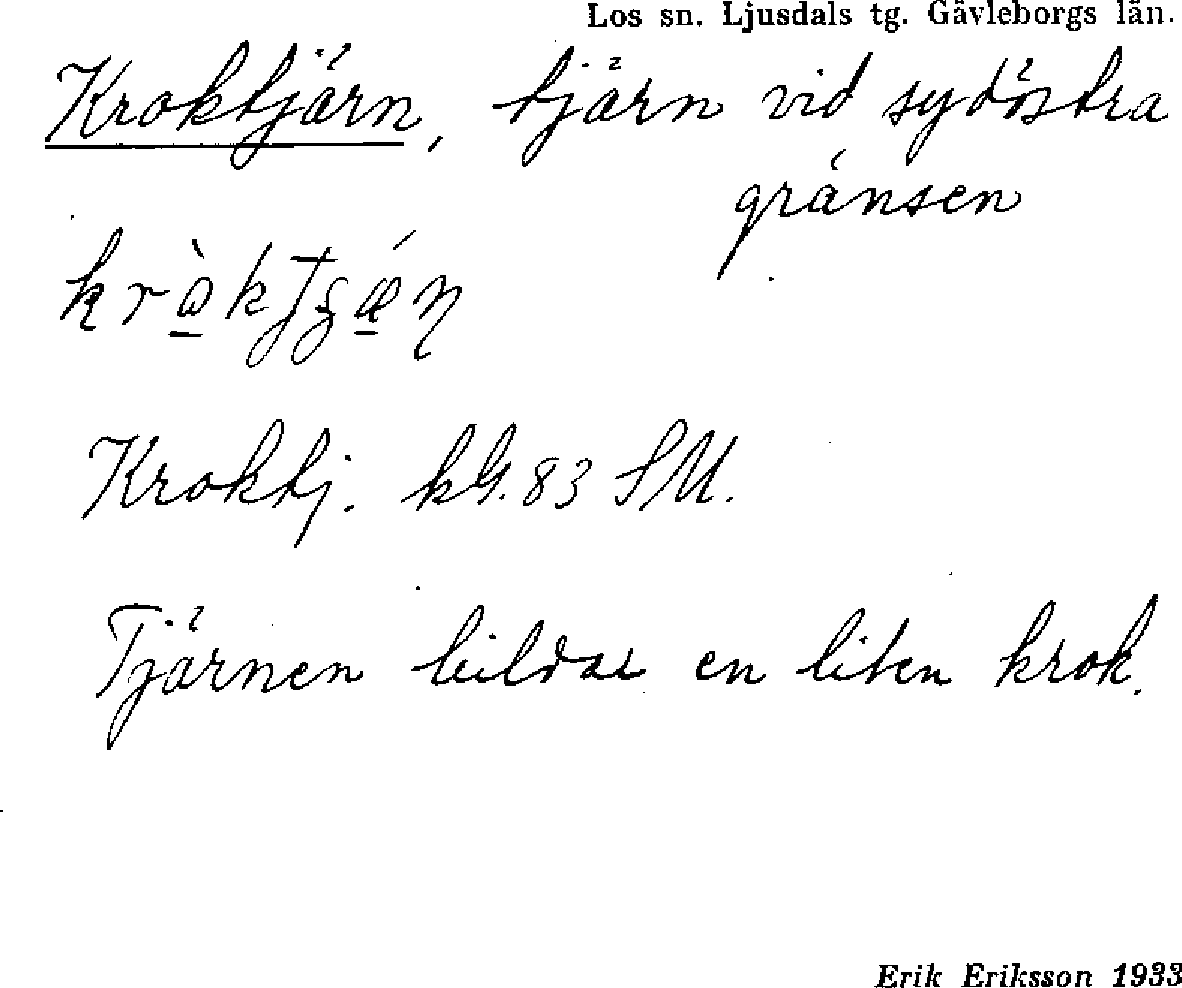 Los sn. Ljusdals tg. Gävleborgs län.
Kroktjärn, tjärn vid sydöstra
gränsen
Kroktj. kG. 83 SM.
Tjärnen bildar en liten krok.
Erik Eriksson 1933